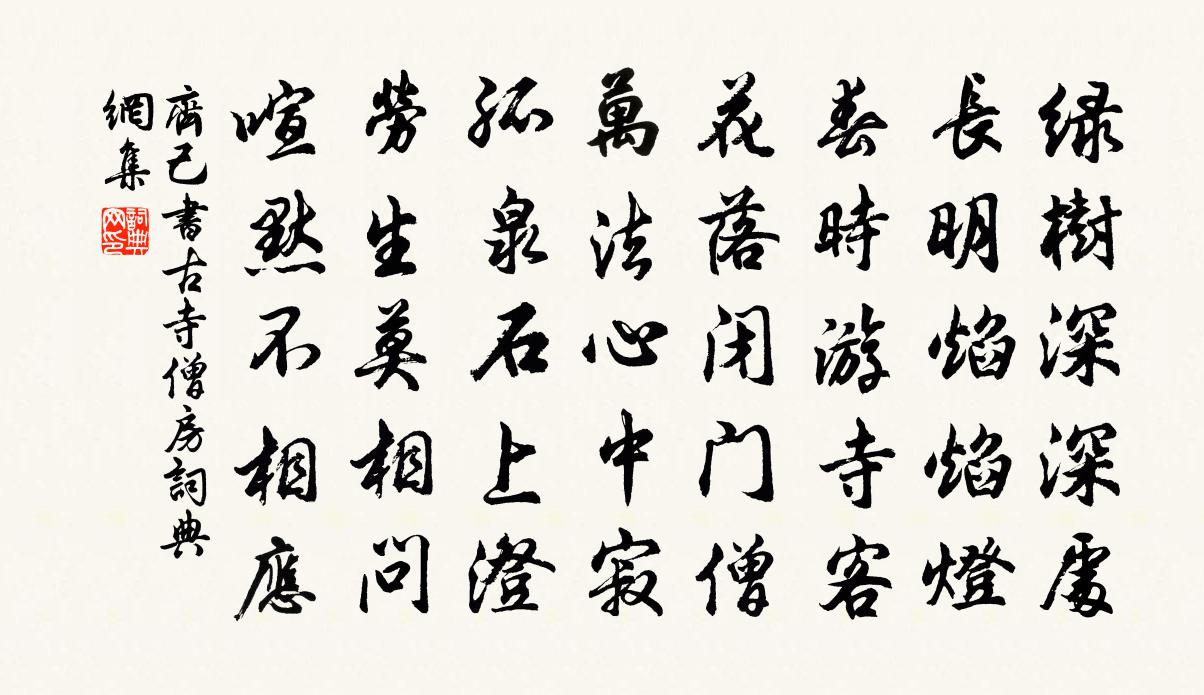 绿樹深深處
長明焰焰燈
春時游寺客
花落闭门僧
萬法心中寂
孤泉石上澄
勞生莫相问
喧默不相應
齊己書古寺僧房詞典
網集
詞典网印